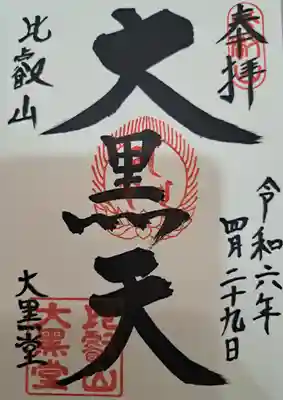 奉拝
令和六年
四月二十九日
大黒天
比叡山
大黒堂
比叡山
大黑堂